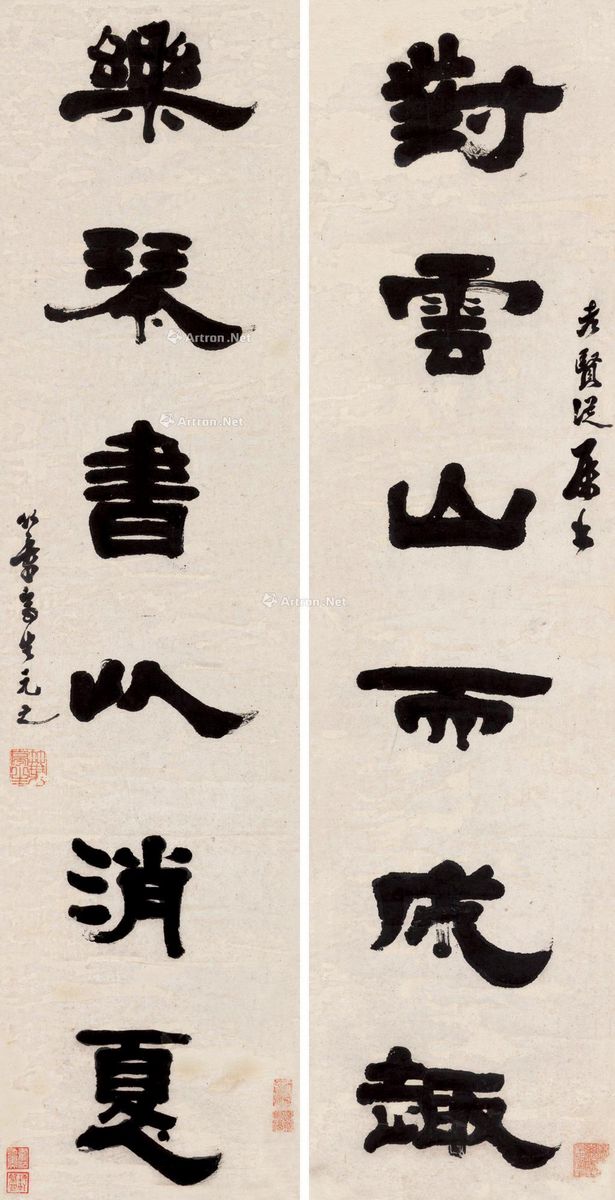 賢從屬書
對雲山而成趣
樂琴書以消夏
竹葉亭生元之
Artron.Net
Artron.Net
Artron.Net
Artron.Net